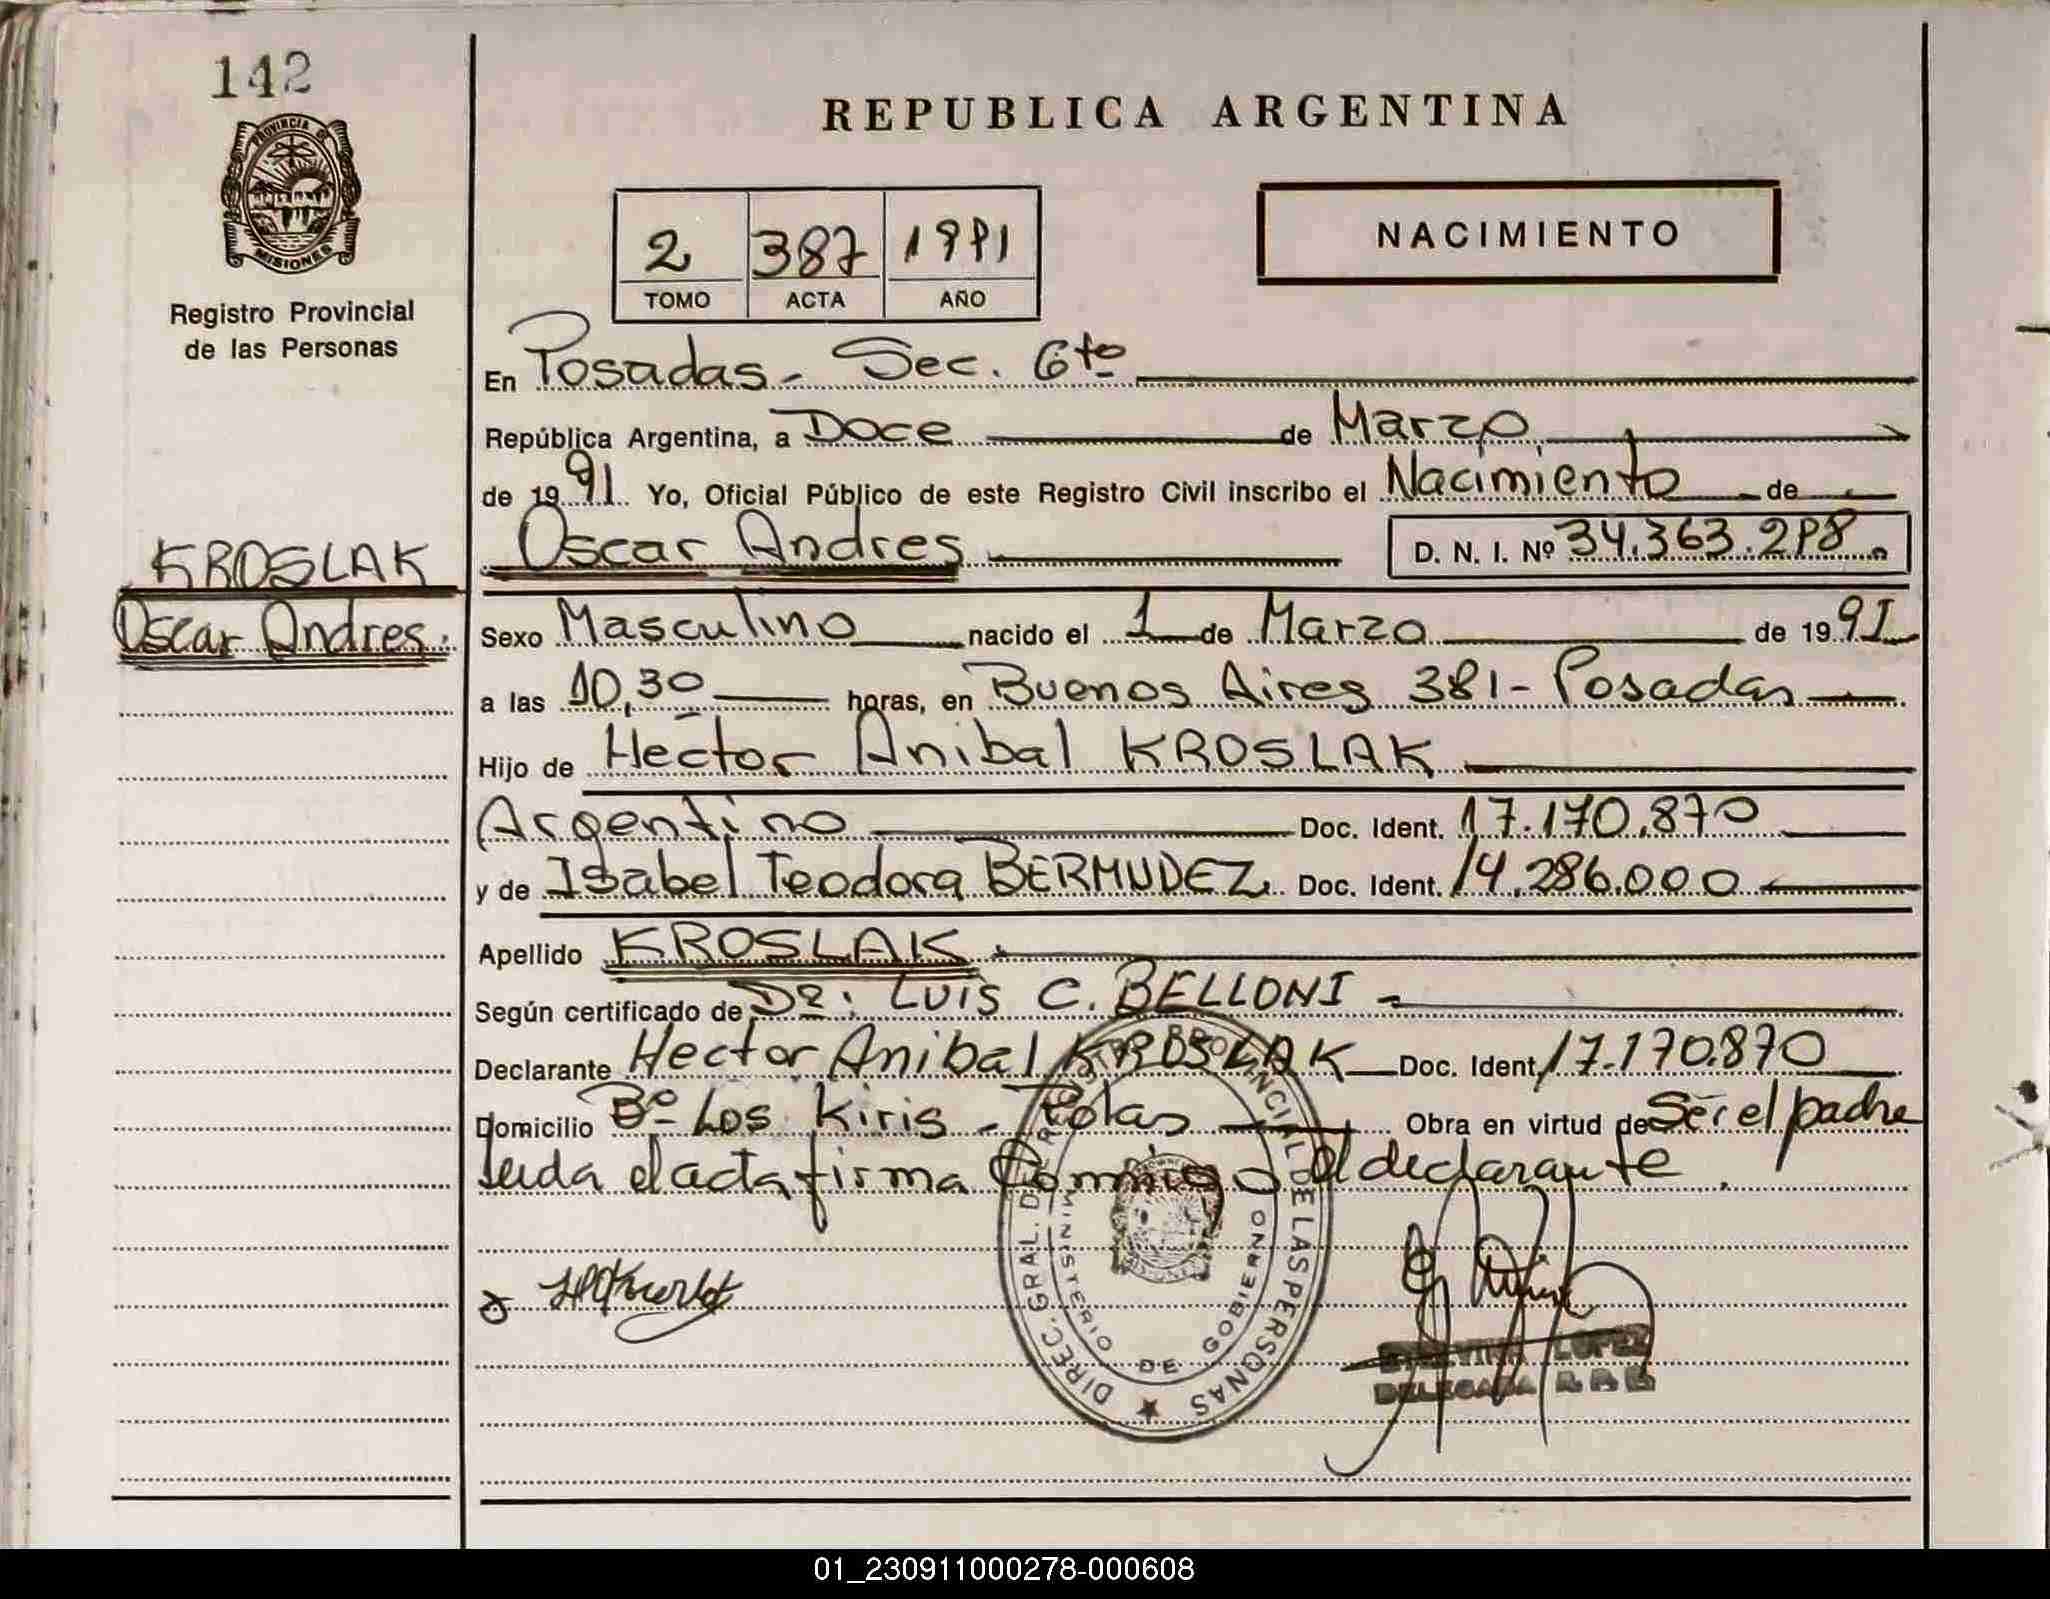 142
PROVINCIA DE
MISIONES
Registro Provincial
de las Personas
KROSLAK
Oscar Andres.
REPUBLICA ARGENTINA
2 387 1991
TOMO ACTA AÑO
NACIMIENTO
En Posadas - Sec. 6ta
República Argentina, a Doce de Marzo
de 1991 Yo, Oficial Público de este Registro Civil inscribo el Nacimiento de
Oscar Andres D. N. I. Nº 34.363.298.
Sexo Masculino nacido el 1 de Marzo de 1991
a las 10,30 horas, en Buenos Aires 381 - Posadas
Hijo de Hector Anibal KROSLAK
Argentino Doc. Ident. 17.170.870
y de Isabel Teodora BERMUDEZ Doc. Ident. 14.286.000
Apellido KROSLAK
Según certificado de Dr. LUIS C. BELLONI
Declarante Hector Anibal KROSLAK Doc. Ident. 17.170.870
Domicilio Bº Los Kiris - Pdas Obra en virtud de Ser el padre
Leida el acta firma Conmigo el declarante.
DIREC. GRAL. DEL REGISTRO PROVINCIAL DE LAS PERSONAS
MINISTERIO DE GOBIERNO
LOPEZ
DELEGADA R.P.P.
01_230911000278-000608